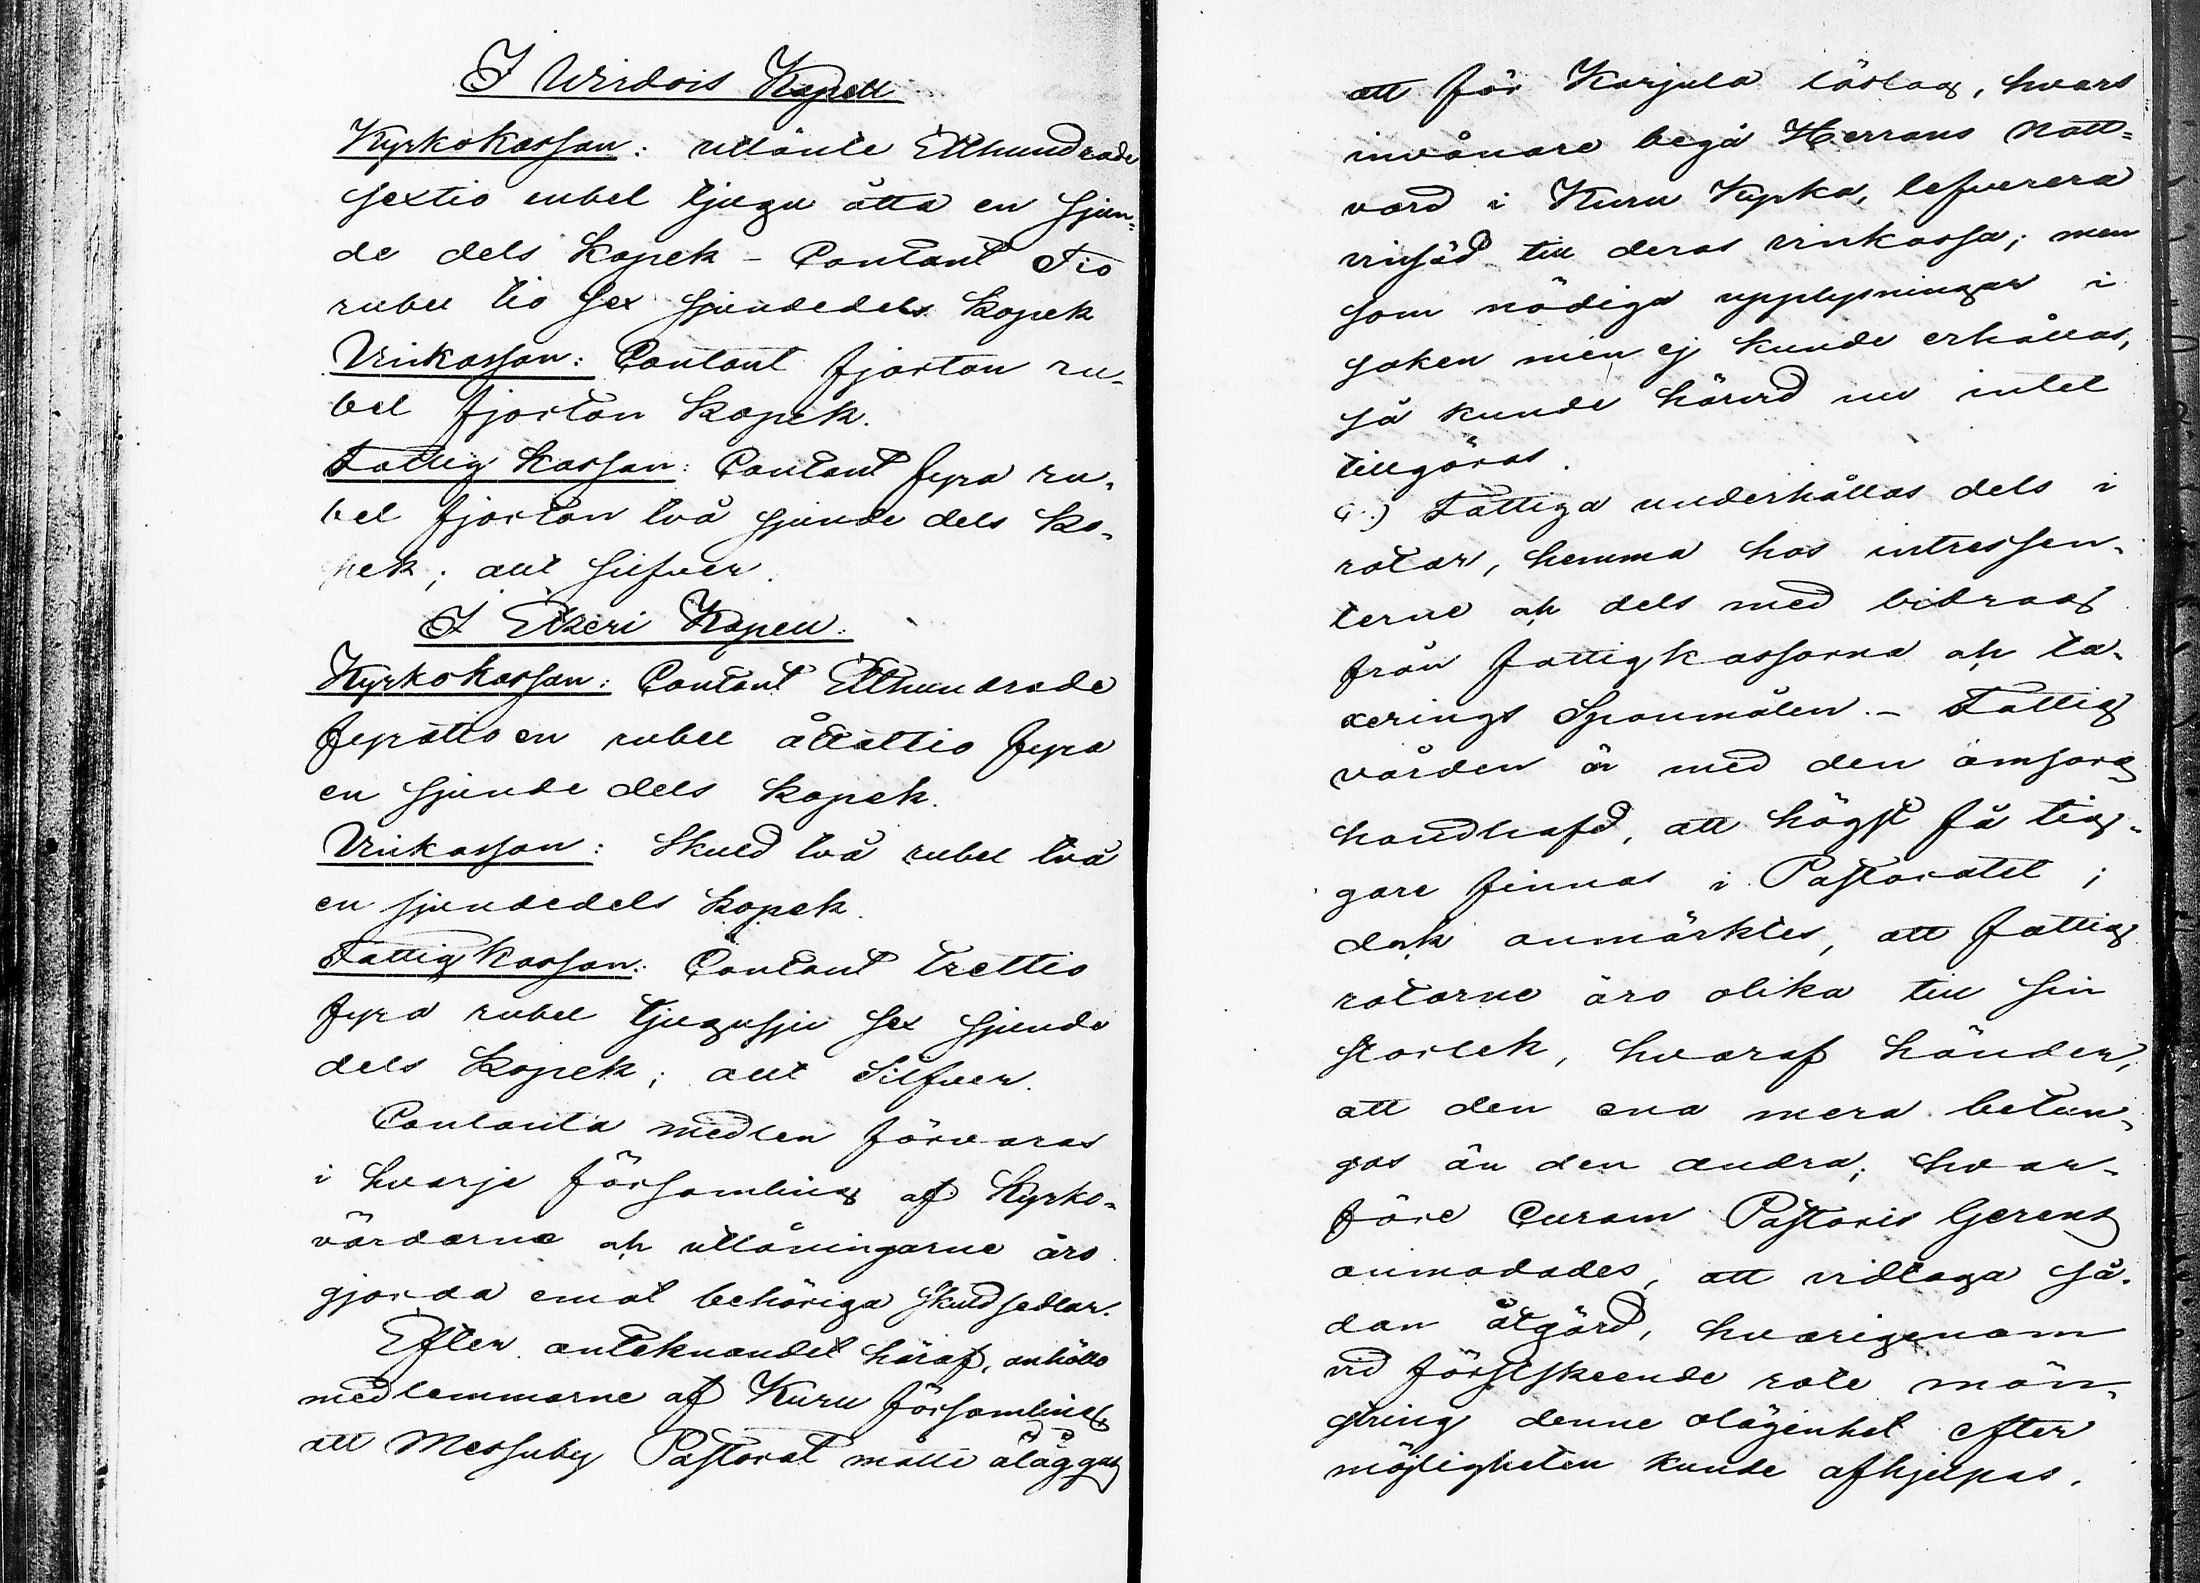 I Wirdois Kapell
Kyrkokassan: utlånte Etthundrade
sextio rubel tjugu åtta en sjun=
de dels kopek – Contant Tio
rubel tio sex sjundedels kopek
Vinkassan: Contant fjorton ru-
bel fjorton kopek.
Fattig kassan: Contant fyra ru-
bel fjorton två sjunde dels ko-
pek; allt silfver.
I Etseri Kapell.
Kyrkokassan: Contant Etthundrade
fyratio en rubel åttatio fyra
en sjunde dels kopek.
Vinkassan: Skuld två rubel två
en sjundedels kopek.
Fattig kassan: Contant trettio
fyra rubel tjugusju sex sjunde
dels kopek; allt Silfver.
Contanta medlen förvaras
i hvarje församling af Kyrko-
värdarne och utlåningarne äro
gjorda emot behöriga skuldsedlar.
Efter anteknandet häraf, anhöllo
medlemmarne af Kuru församling,
att Messuby Pastorat måtte åläggas
att för Karjula löstag, hvars
invånare begå Herrans Natt=
vard i Kuru Kyrka, lefverera
vinsäd till deras vinkassa; men
som nödiga upplysningar i
saken nien ej kunde erhållas,
så kunde härvid nu intet
tillgöras.
Fattiga underhållas dels i
rotar, hemma hos intressen-
terne och dels med bidrag
från fattigkassorna och ta-
xerings Spanmålen. – Fattig
vården är med den omsorg
handhafd, att högst få tig-
gare finnas i Pastoratet;
dock anmärktes, att fattig
rotarne äro olika till sin
storlek, hvaraf händer,
att den ena mera betun-
gas än den andra; hvar-
före Curam Pastoris Gerens
anmodades, att vidtaga så-
dan åtgärd, hvarigenom
vid förstskeende rote män-
gtring denne olägenhet efter
möjligheten kunde afhjelpas.